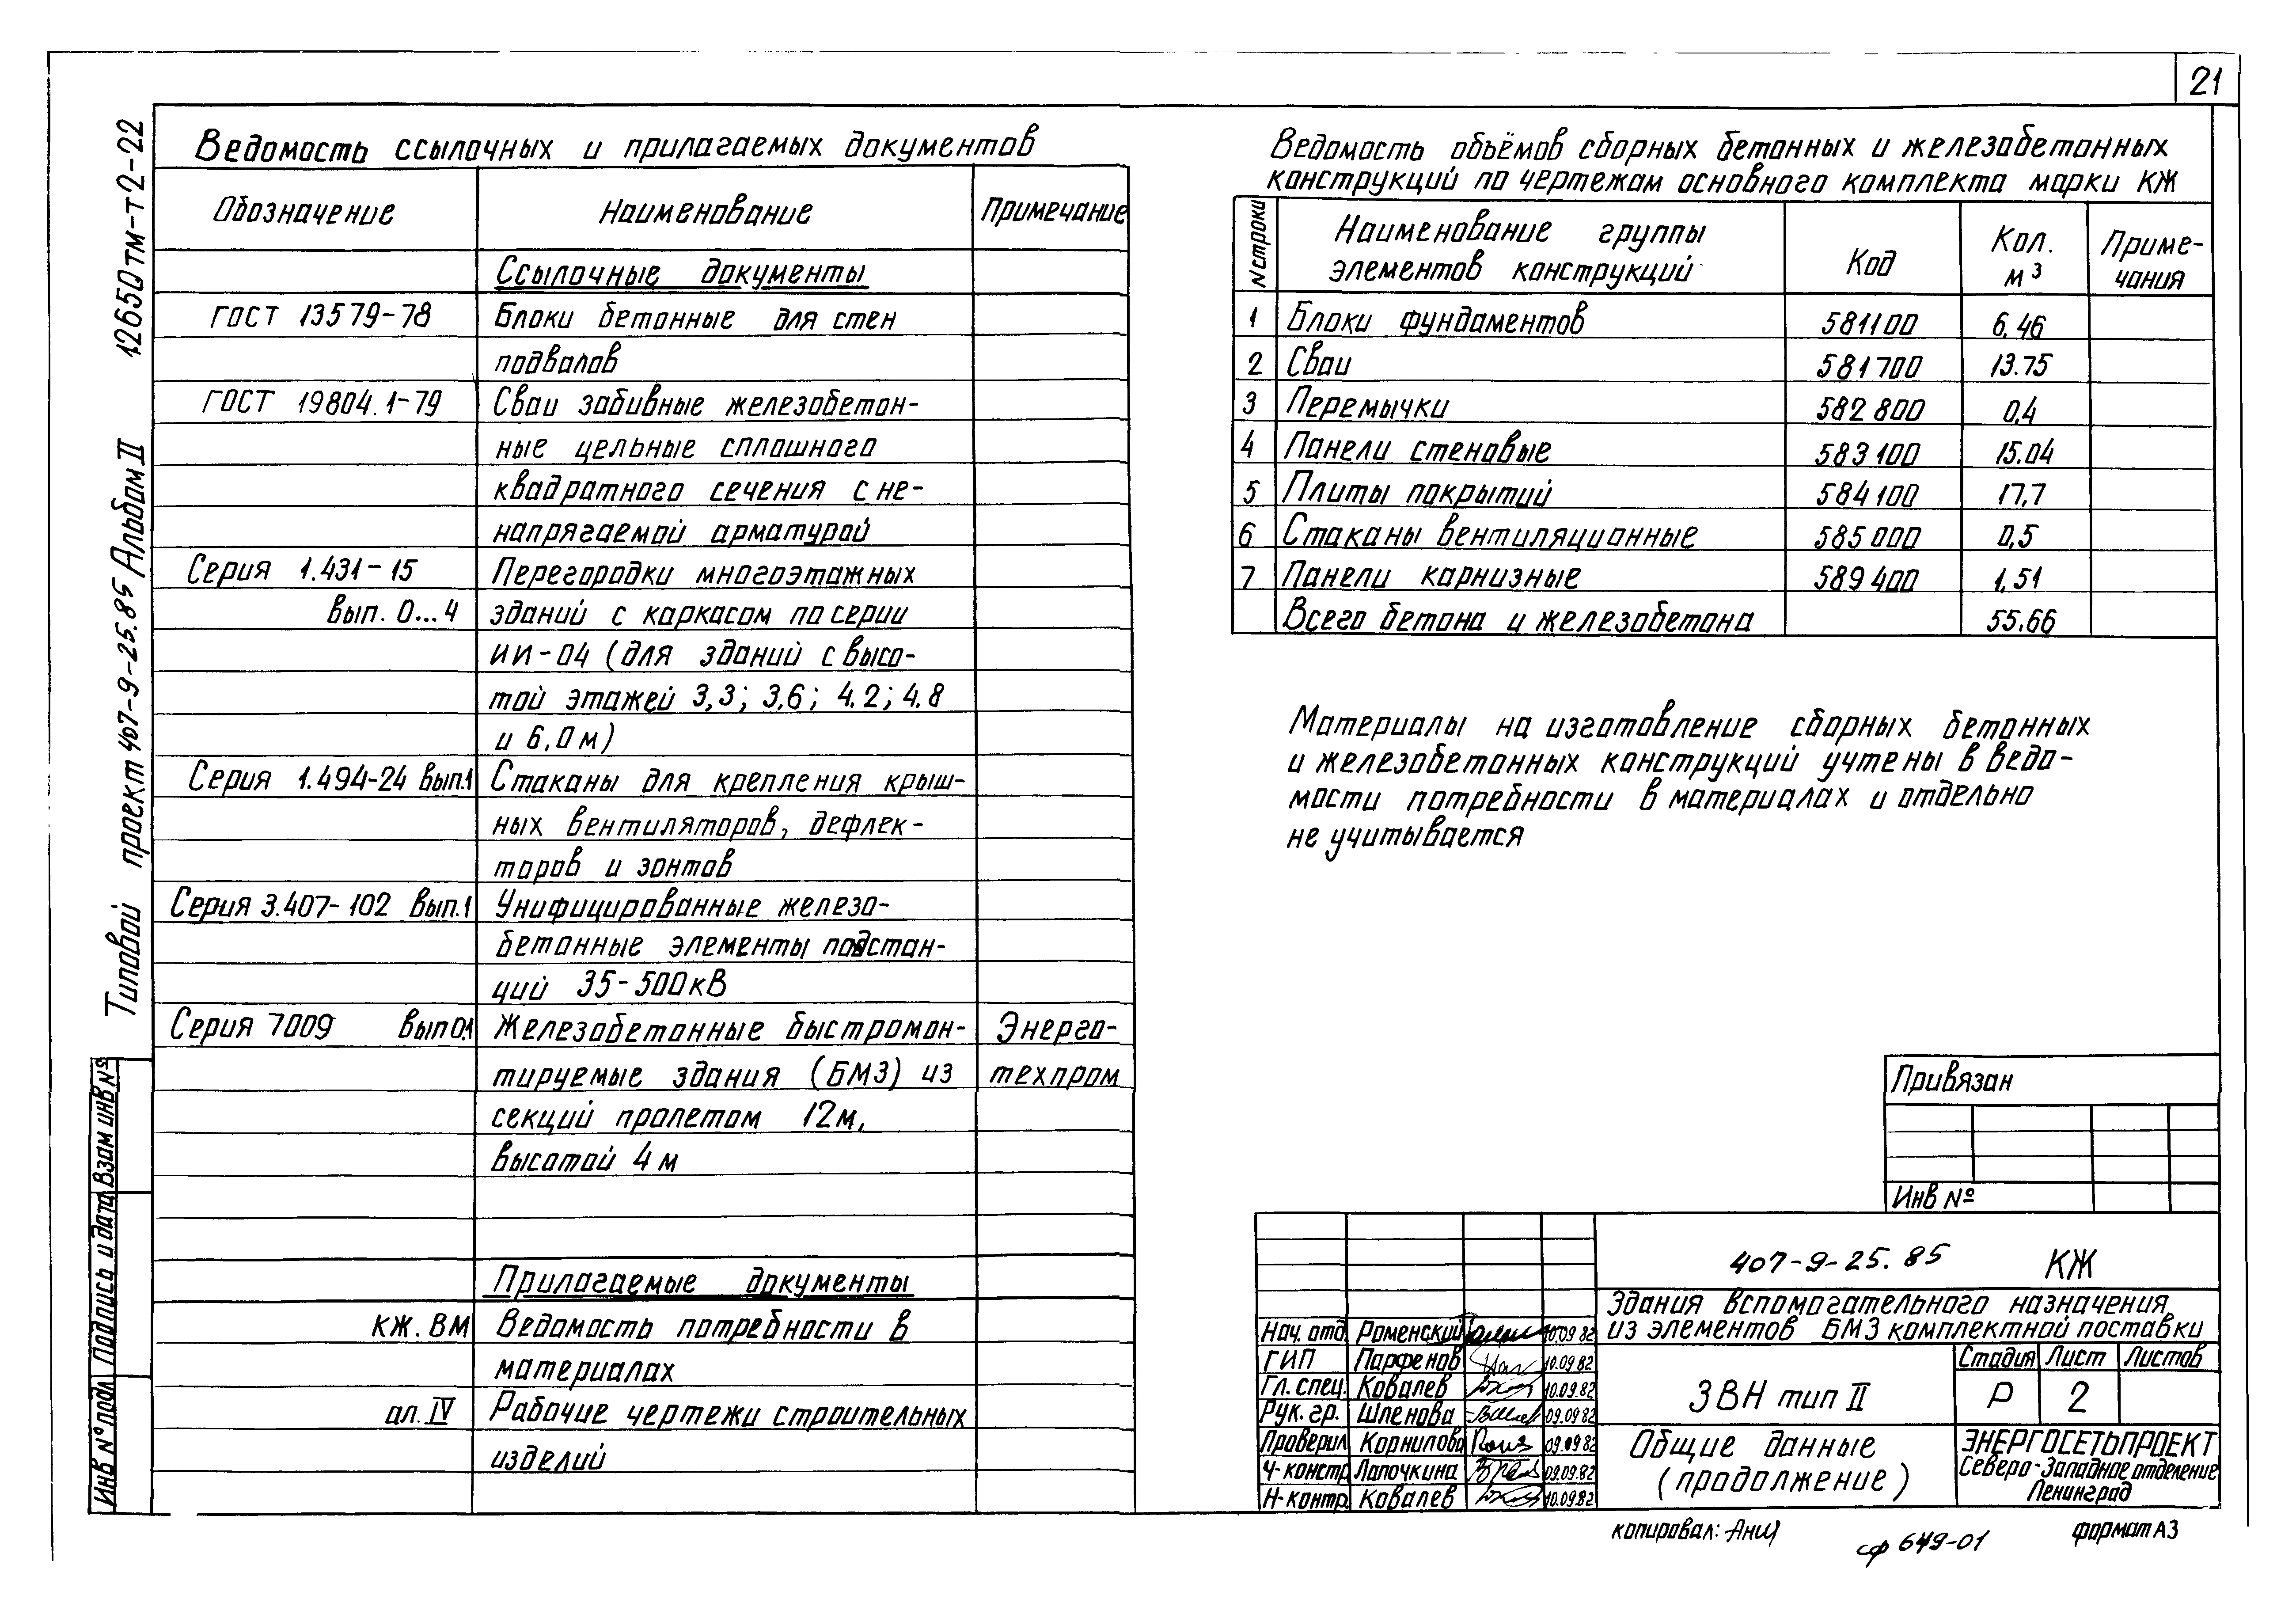 21
Ведомость ссылочных и прилагаемых документов
Обозначение Наименование Примечание
Ссылочные документы
ГОСТ 13579-78 Блоки бетонные для стен
подвалов
ГОСТ 19804.1-79 Сваи забивные железобетон-
ные цельные сплошного
квадратного сечения с не-
напрягаемой арматурой
Серия 1.431-15 Перегородки многоэтажных
вып. 0...4 зданий с каркасом по серии
ИИ-04 (для зданий с высо-
той этажей 3,3; 3,6; 4.2; 4.8
и 6,0м)
Серия 1.494-24 вып.1 Стаканы для крепления крыш-
ных вентиляторов, дефлек-
торов и зонтов
Серия 3.407-102 вып.1 Унифицированные железо-
бетонные элементы подстан-
ций 35-500кВ
Серия 7009 вып0.1 Железобетонные быстромон- Энерго-
тируемые здания (БМЗ) из техпром
секций пролетом 12м,
высотой 4м
Прилагаемые документы
КЖ.ВМ Ведомость потребности в
материалах
ал. IV Рабочие чертежи строительных
изделий
Ведомость объёмов сборных бетонных и железобетонных
конструкций по чертежам основного комплекта марки КЖ
N строки Наименование группы элементов конструкций Код Кол. м3 Приме-чания
1 Блоки фундаментов 581100 6.46
2 Сваи 581700 13.75
3 Перемычки 582800 0,4
4 Панели стеновые 583100 15.04
5 Плиты покрытий 584100 17,7
6 Стаканы вентиляционные 585000 0,5
7 Панели карнизные 589400 1,51
Всего бетона и железобетона 55.66
Материалы на изготовление сборных бетонных
и железобетонных конструкций учтены в ведо-
мости потребности в материалах и отдельно
не учитывается
Привязан
Инв №
407-9-25.85 КЖ
Здания вспомогательного назначения
из элементов БМЗ комплектной поставки
Нач. отд. Роменский 10.09 82
ГИП Парфенов 10.09 82
Гл. спец. Ковалев 10.09.82
Рук. гр. Шленова 09.09 82
Проверил Корнилова 09.09 82
Ч-констр Лапочкина 09.09.82
Н-контр. Ковалев 10.09.82
ЗВН тип II
Стадия Лист Листов
Р 2
Общие данные
(продолжение)
ЭНЕРГОСЕТЬПРОЕКТ
Северо-Западное отделение
Ленинград
копировал:
сф 649-01
формат А3
Типовой проект 407-9-25.85 Альбом II 12650тм-т2-22
Инв № подл Подпись и дата Взам инв №